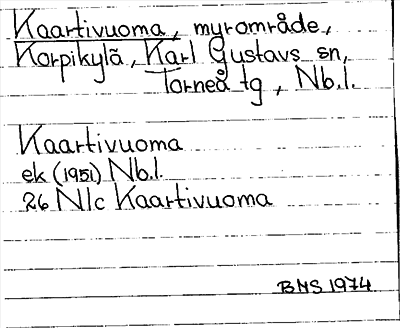 Kaartivuoma, myrområde,
Korpikylä, Karl Gustavs sn,
Torneå tg, Nb.l.
Kaartivuoma
ek (1951) Nb.l.
26 Nlc Kaartivuoma
BNS 1974